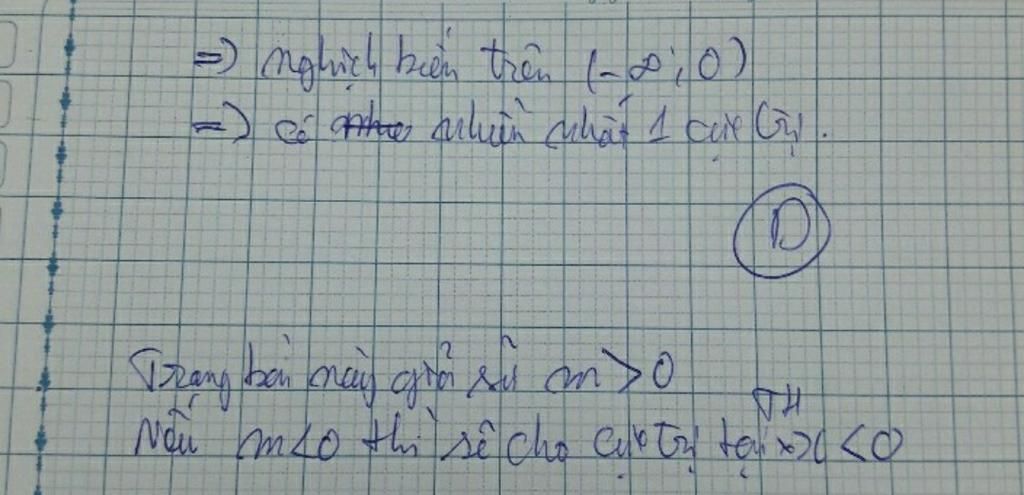 => nghịch biến trên (-∞; 0)
=> có nhiều nhất 1 cực trị.
D
Trong bài này giả sử m > 0
TH
Nếu m<0 thì sẽ cho cực trị tại x <0